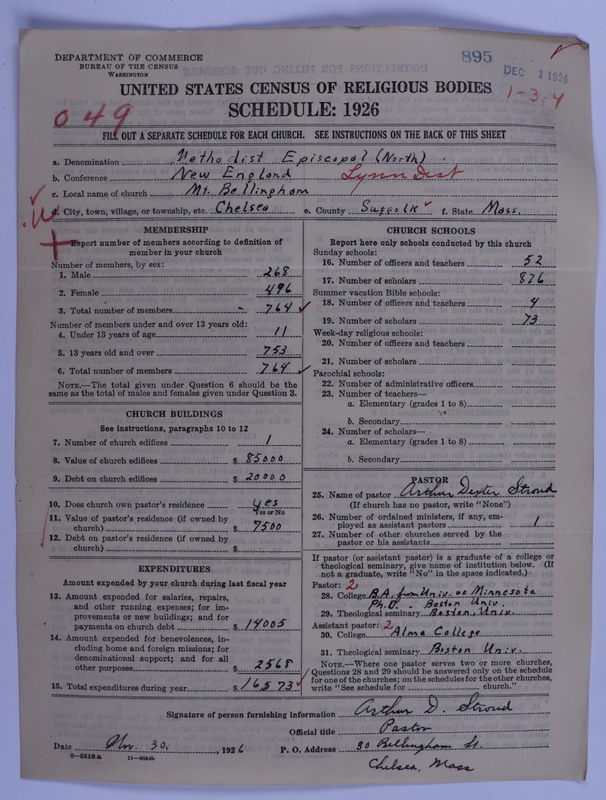 DEPARTMENT OF COMMERCE
BUREAU OF THE CENSUS
WASHINGTON
895
DEC 1 1926
1-3-4
UNITED STATES CENSUS OF RELIGIOUS BODIES
SCHEDULE: 1926
049
FILL OUT A SEPARATE SCHEDULE FOR EACH CHURCH. SEE INSTRUCTIONS ON THE BACK OF THIS SHEET
a. Denomination Methodist Episcopal (North)
b. Conference New England Lynn Dist
c. Local name of church Mt. Bellingham
d. City, town, village, or township, etc. Chelsea e. County Suffolk f. State Mass.
MEMBERSHIP
Report number of members according to definition of
member in your church
Number of members, by sex:
1. Male 268
2. Female 496
3. Total number of members 764
Number of members under and over 13 years old:
4. Under 13 years of age 11
5. 13 years old and over 753
6. Total number of members 764
NOTE.—The total given under Question 6 should be the
same as the total of males and females given under Question 3.
CHURCH BUILDINGS
See instructions, paragraphs 10 to 12
7. Number of church edifices 1
8. Value of church edifices $ 85000
9. Debt on church edifices $ 20000
10. Does church own pastor's residence yes
Yes or No
11. Value of pastor's residence (if owned by
church) $ 7500
12. Debt on pastor's residence (if owned by
church) $
EXPENDITURES
Amount expended by your church during last fiscal year
13. Amount expended for salaries, repairs,
and other running expenses; for im-
provements or new buildings; and for
payments on church debt $ 14005
14. Amount expended for benevolences, in-
cluding home and foreign missions; for
denominational support; and for all
other purposes $ 2568
15. Total expenditures during year $ 16573
CHURCH SCHOOLS
Report here only schools conducted by this church
Sunday schools:
16. Number of officers and teachers 52
17. Number of scholars 826
Summer vacation Bible schools:
18. Number of officers and teachers 4
19. Number of scholars 73
Week-day religious schools:
20. Number of officers and teachers
21. Number of scholars
Parochial schools:
22. Number of administrative officers
23. Number of teachers—
a. Elementary (grades 1 to 8)
b. Secondary
24. Number of scholars—
a. Elementary (grades 1 to 8)
b. Secondary
PASTOR
25. Name of pastor Arthur Dexter Stroud
(If church has no pastor, write "None")
26. Number of ordained ministers, if any, em-
ployed as assistant pastors 1
27. Number of other churches served by the
pastor or his assistants
If pastor (or assistant pastor) is a graduate of a college or
theological seminary, give name of institution below. (If
not a graduate, write "No" in the space indicated.)
Pastor: 2
28. College B.A. from Univ. of Minnesota
Ph.D. - Boston Univ.
29. Theological seminary Boston Univ.
Assistant pastor: 2
30. College Alma College
31. Theological seminary Boston Univ.
NOTE.—Where one pastor serves two or more churches,
Questions 28 and 29 should be answered only on the schedule
for one of the churches; on the schedules for the other churches,
write "See schedule for church."
Signature of person furnishing information Arthur D. Stroud
Official title Pastor
Date Nov. 30, 1926 P. O. Address 30 Bellingham St.
Chelsea, Mass
8-5518a